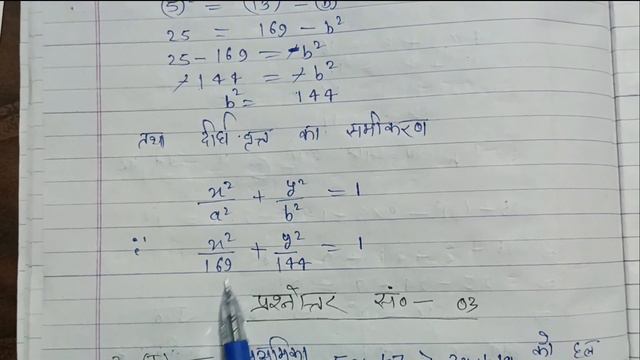 (5)² = (13)² - (b)²
25 = 169 - b²
25 - 169 = - b²
- 144 = - b²
b² = 144
तथा दीर्घ वृत्त का समीकरण
x²/a² + y²/b² = 1
∴ x²/169 + y²/144 = 1
प्रश्नोत्तर सं० - 03
को हल